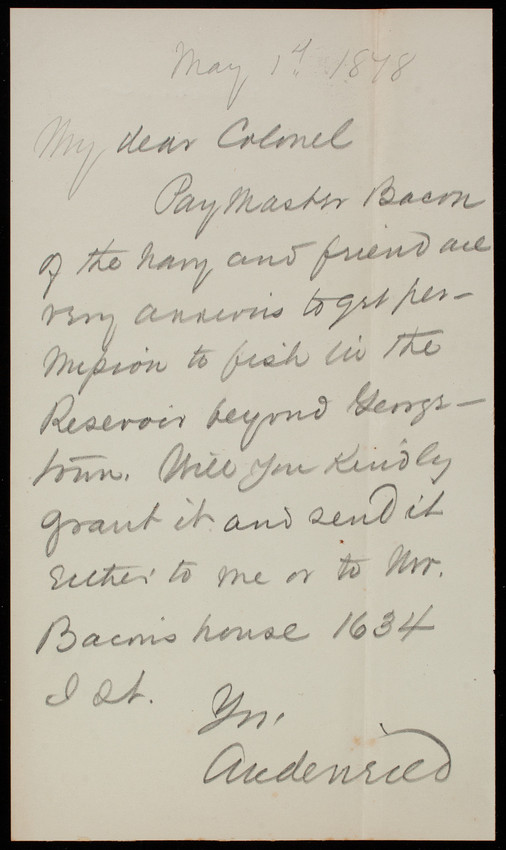 May 1st 1878
My dear Colonel
PayMaster Bacon
of the Navy and friend are
very anxious to get per-
mission to fish in the
Reservoir beyond George-
town. Will you kindly
grant it and send it
either to me or to Mr.
Bacon's house 1634
I St.
Yrs,
Audenried